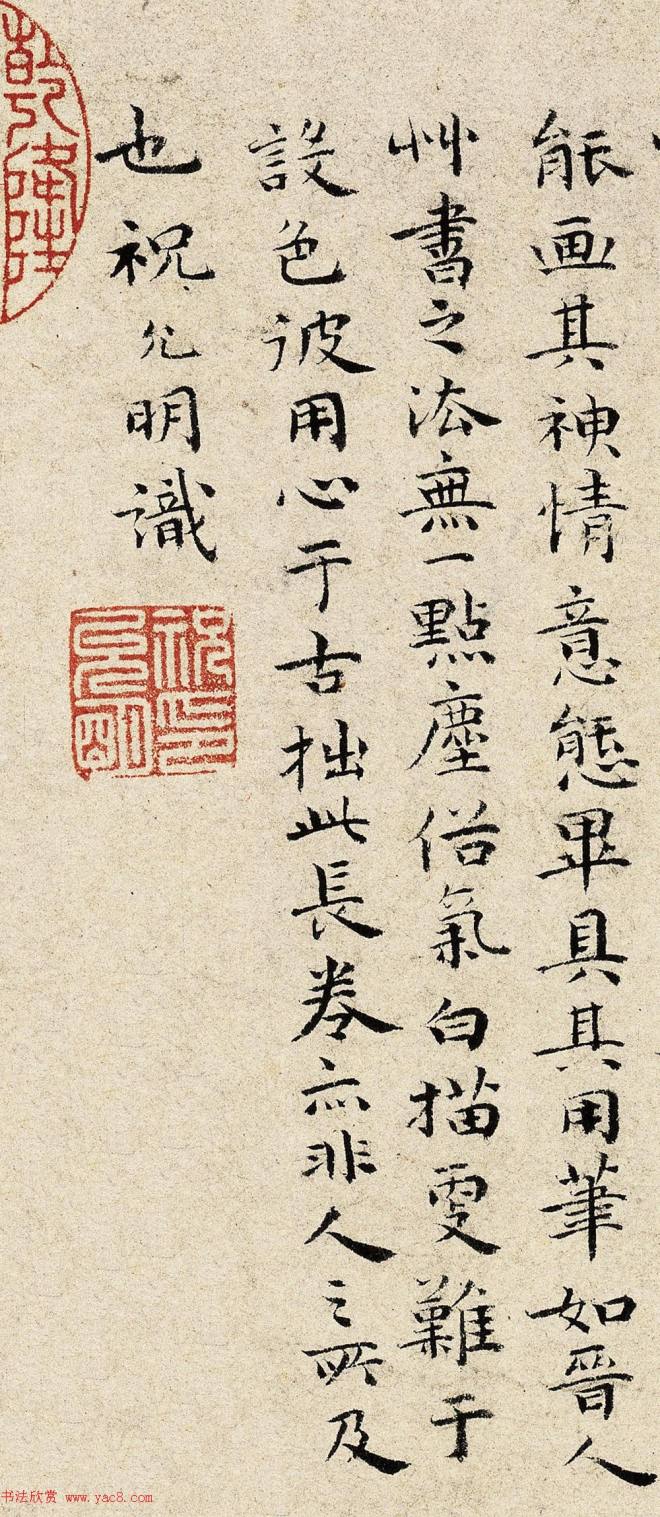 能画其神情意態畢具其用筆如晉人
艸書之法無一點塵俗氣白描更難于
設色彼用心于古拙此長卷亦非人之所及
也祝允明識
祝允明印
乾隆
书法欣赏 www.yac8.com